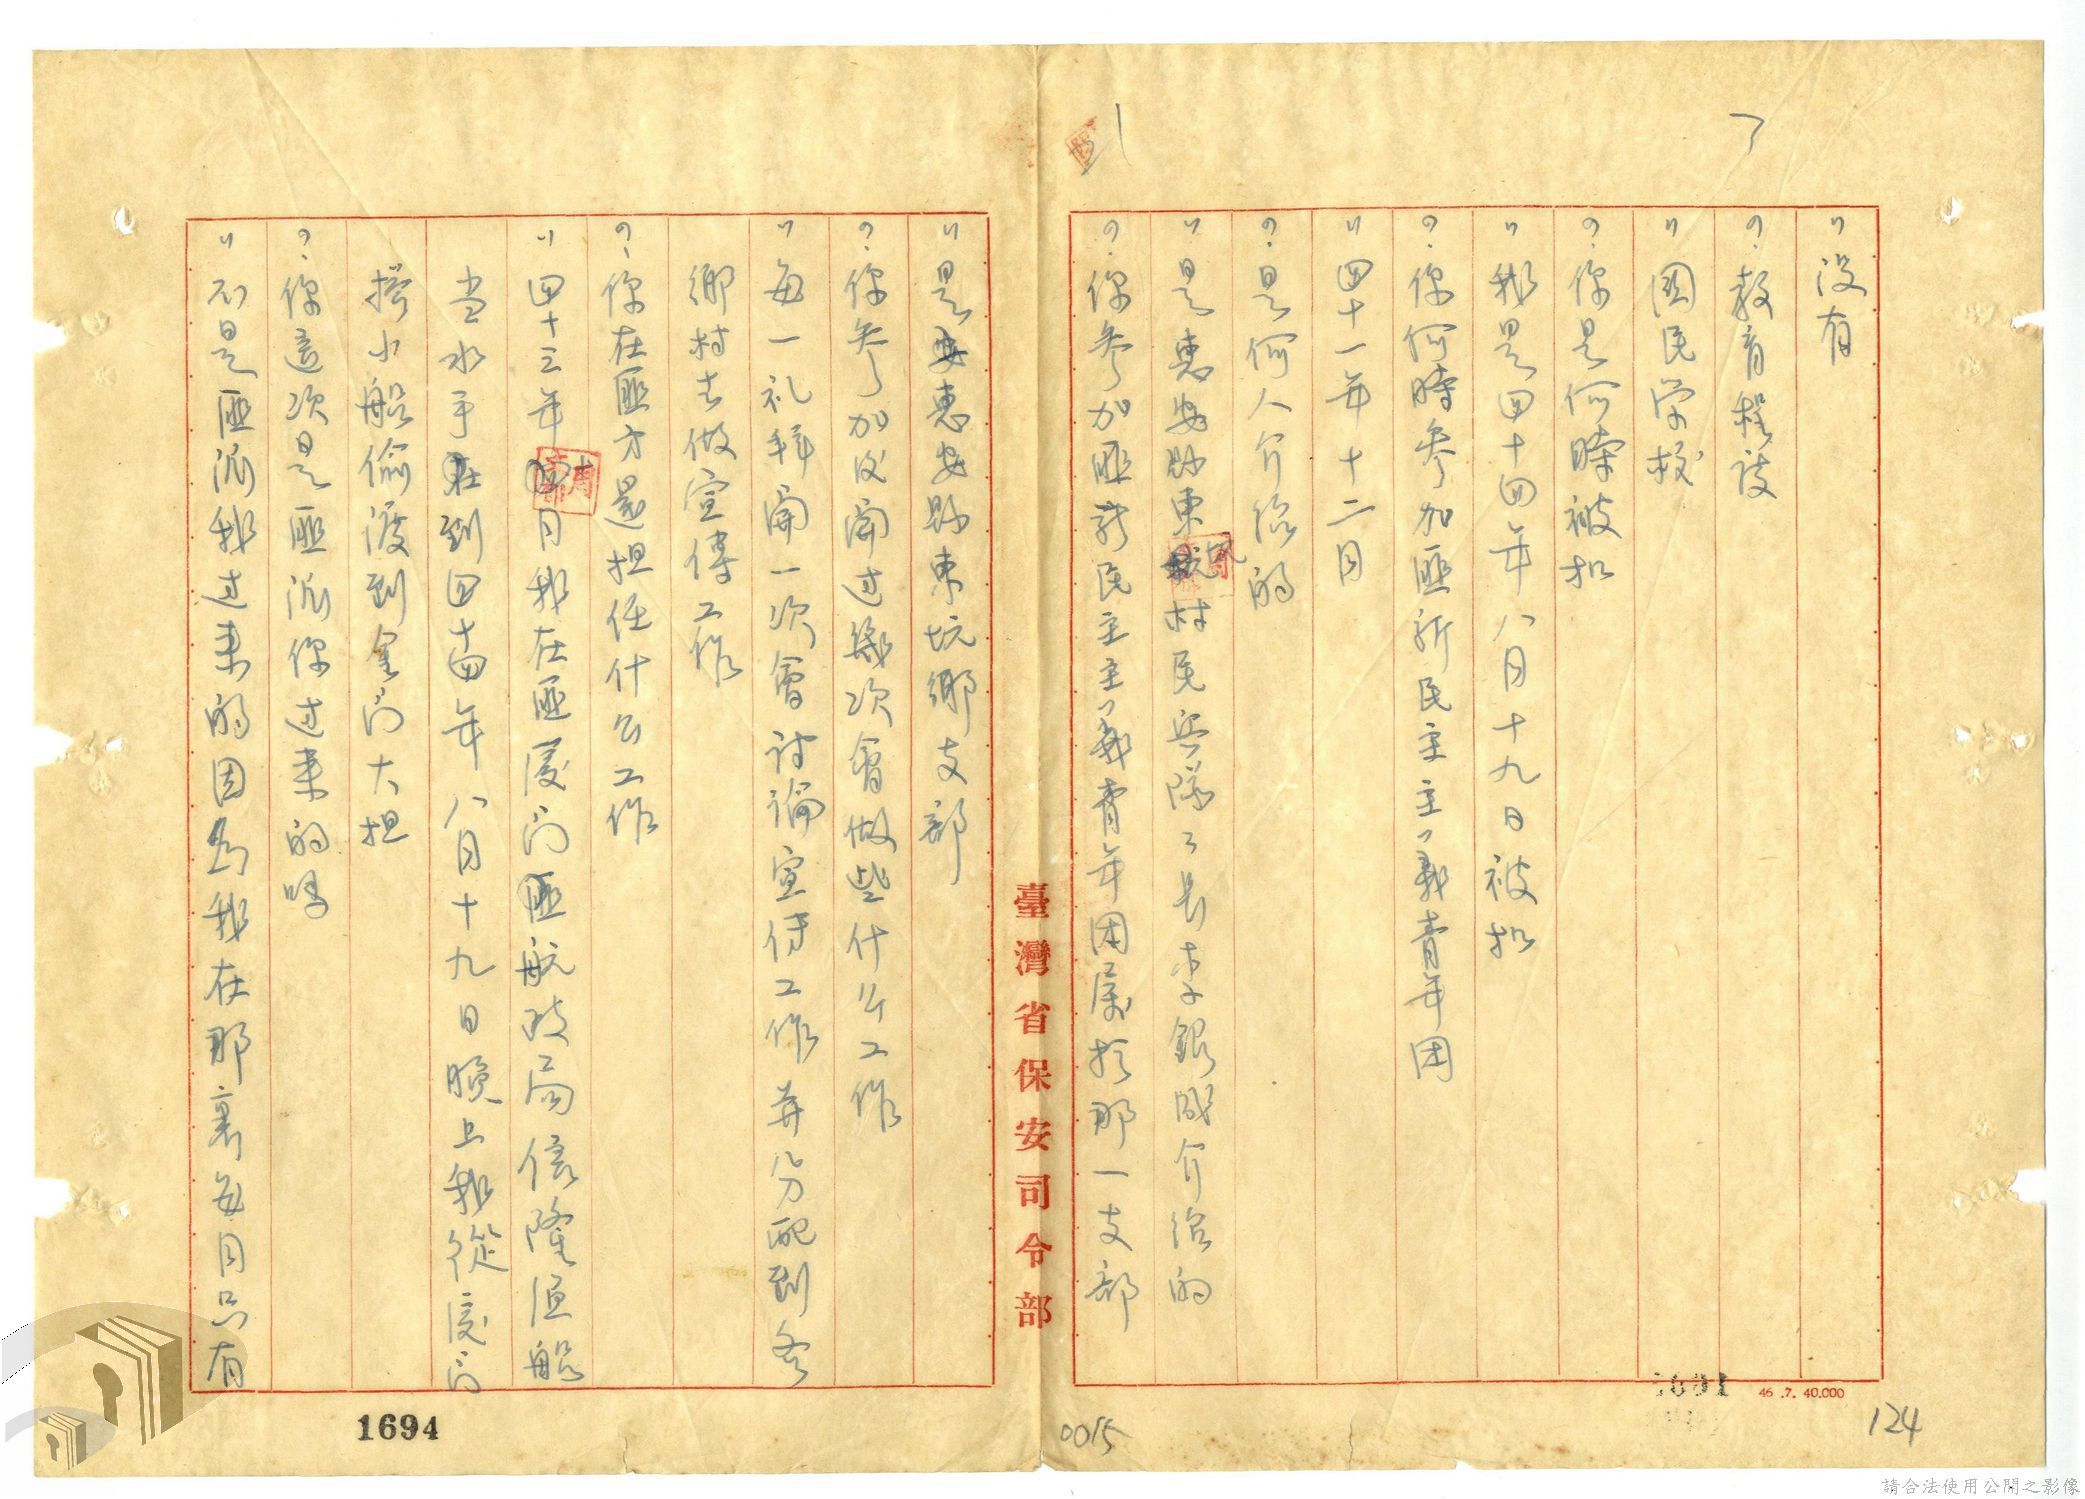 〃没有
?·教育程度
〃國民学校
?·你是何時被扣
〃我是四十四年八月十九日被扣
?·你何時參加匪新民主主義青年团
〃四十一年十二月
?·是何人介绍的
〃是惠安縣東坑村民兵隊々長李銀成介绍的
?·你參加匪新民主主義青年团属於那一支部
臺灣省保安司令部
〃是惠安縣東坑鄉支部
?·你參加後開过幾次會做些什么工作
〃每一礼拜開一次會討論宣传工作并分配到各
鄉村去做宣傳工作
?·你在匪方還担任什么工作
〃四十三年 月我在匪廈门匪航政局信隆 船
当水手在到四十四年八月十九日晚上我從廈门
搾小船偷渡到金门大担
?·你這次是匪派你过来的嗎
〃不是匪派我过来的因為我在那裏每月只有
1694
0015
1691
46.7.40.000
124
請合法使用公開之影像